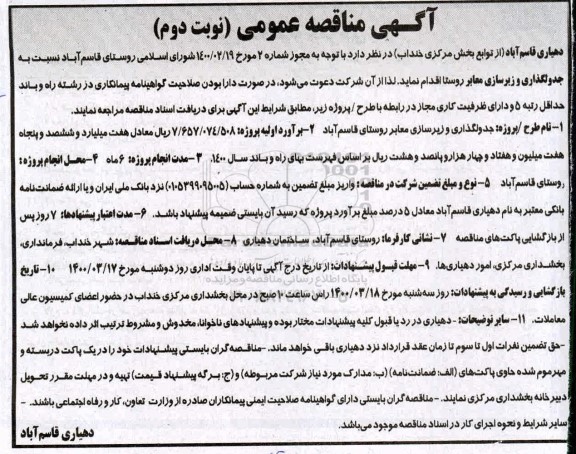 آگهی مناقصه عمومی (نوبت دوم)
دهیاری قاسم‌آباد (از توابع بخش مرکزی خنداب) در نظر دارد با توجه به مجوز شماره ۲ مورخ ۱۴۰۰/۰۲/۱۹ شورای اسلامی روستای قاسم‌آباد نسبت به
جدولگذاری و زیرسازی معابر روستا اقدام نماید. لذا از آن شرکت دعوت می‌شود، در صورت دارا بودن صلاحیت گواهینامه پیمانکاری در رشته راه و باند
حداقل رتبه ۵ و دارای ظرفیت کاری مجاز در رابطه با طرح / پروژه زیر، مطابق شرایط این آگهی برای دریافت اسناد مناقصه مراجعه نمایند.
۱- نام طرح / پروژه: جدولگذاری و زیرسازی معابر روستای قاسم‌آباد ۲- برآورد اولیه پروژه: ۷/۶۵۷/۰۷۴/۵۰۸ ریال معادل هفت میلیارد و ششصد و پنجاه
هفت میلیون و هفتاد و چهار هزار و پانصد و هشت ریال بر اساس فهرست بهای راه و باند سال ۱۴۰۰. ۳- مدت انجام پروژه: ۶ ماه ۴- محل انجام پروژه:
روستای قاسم‌آباد ۵- نوع و مبلغ تضمین شرکت در مناقصه: واریز مبلغ تضمین به شماره حساب (۰۱۰۵۳۹۹۰۹۵۰۰۵) نزد بانک ملی ایران و یا ارائه ضمانت‌نامه
بانکی معتبر به نام دهیاری قاسم‌آباد معادل ۵ درصد مبلغ برآورد پروژه که رسید آن بایستی ضمیمه پیشنهاد باشد. ۶- مدت اعتبار پیشنهادها: ۷ روز پس
از بازگشایی پاکت‌های مناقصه ۷- نشانی کارفرما: روستای قاسم‌آباد، ساختمان دهیاری ۸- محل دریافت اسناد مناقصه: شهر خنداب، فرمانداری،
بخشداری مرکزی، امور دهیاری‌ها. ۹- مهلت قبول پیشنهادات: از تاریخ درج آگهی تا پایان وقت اداری روز دوشنبه مورخ ۱۴۰۰/۰۳/۱۷ ۱۰- تاریخ
بازگشایی و رسیدگی به پیشنهادات: روز سه‌شنبه مورخ ۱۴۰۰/۰۳/۱۸ راس ساعت ۱۰ صبح در محل بخشداری مرکزی خنداب در حضور اعضای کمیسیون عالی
معاملات. ۱۱- سایر توضیحات: - دهیاری در رد یا قبول کلیه پیشنهادات مختار بوده و پیشنهادهای ناخوانا، مخدوش و مشروط ترتیب اثر داده نخواهد شد
- حق تضمین نفرات اول تا سوم تا زمان عقد قرارداد نزد دهیاری باقی خواهد ماند. - مناقصه‌گران بایستی پیشنهادات خود را در یک پاکت دربسته و
مهرموم شده حاوی پاکت‌های (الف: ضمانت‌نامه) (ب: مدارک مورد نیاز شرکت مربوطه) و (ج: برگه پیشنهاد قیمت) تهیه و در مهلت مقرر تحویل
دبیرخانه بخشداری مرکزی نمایند. - مناقصه‌گران بایستی دارای گواهینامه صلاحیت ایمنی پیمانکاران صادره از وزارت تعاون، کار و رفاه اجتماعی باشند. -
سایر شرایط و نحوه اجرای کار در اسناد مناقصه موجود می‌باشد.
دهیاری قاسم‌آباد